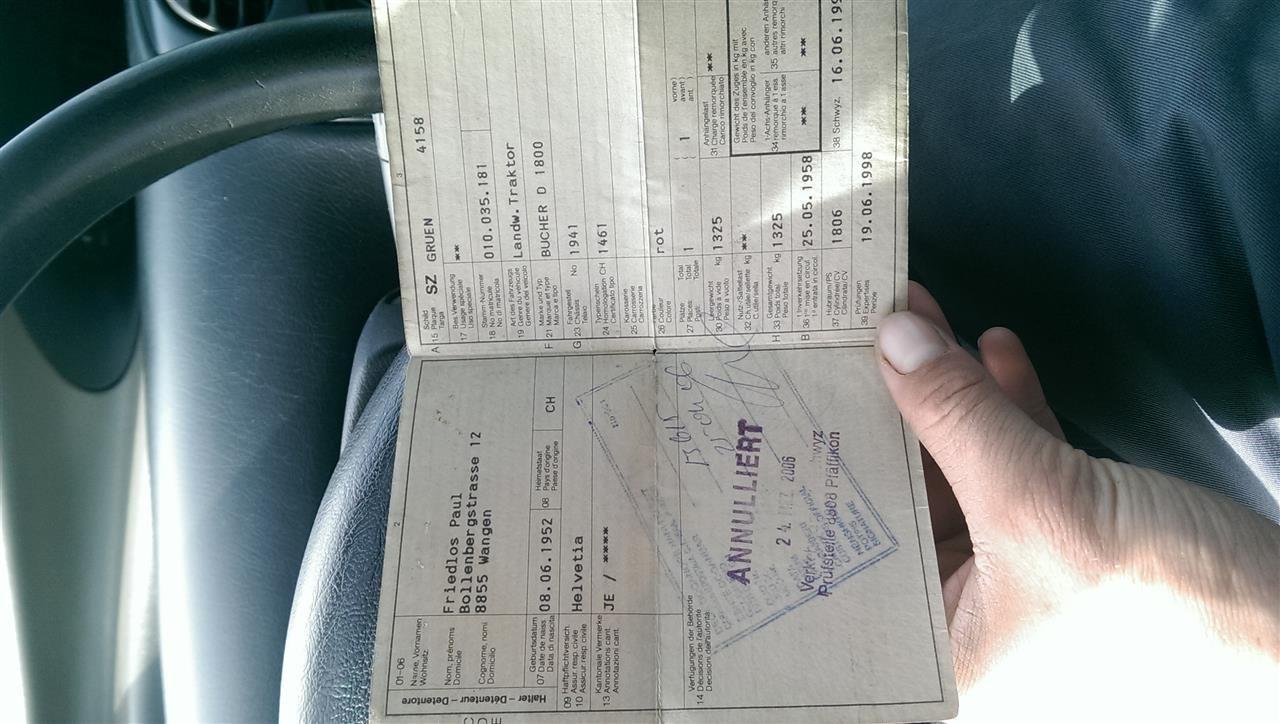 2
01-06
Name, Vornamen
Wohnsitz
Nom, prénoms
Domicile
Cognome, nomi
Domicilio
Friedlos Paul
Bollenbergstrasse 12
8855 Wangen
Halter – Détenteur – Detentore
07 Geburtsdatum
Date de naiss.
Data di nascita
08.06.1952
08 Heimatstaat
Pays d'origine
Paese d'origine
CH
09 Haftpflichtversich.
10 Assur. resp. civile
Assicur. resp. civile
Helvetia
Kantonale Vermerke
13 Annotations cant.
Annotazioni cant.
JE / ****
Verfügungen der Behörde
14 Décisions de l'autorité
Decisioni dell'autorità
ANNULLIERT
2006
Prüfstelle 8808 Pfäffikon
3
Schild
A 15 Plaque
Targa
SZ GRUEN 4158
Bes. Verwendung
17 Usage spéciale
Uso speciale
**
Stamm-Nummer
18 No matricule
No di matricola
010.035.181
Art des Fahrzeugs
19 Genre du véhicule
Genere del veicolo
Landw.Traktor
Marke und Typ
F 21 Marque et type
Marca e tipo
BUCHER D 1800
Fahrgestell No
G 23 Châssis
Telaio
1941
Typenschein
24 Homologation CH
Certificato tipo
1461
Karosserie
25 Carrosserie
Carrozzeria
26 Couleur
Colore
rot
Plätze Total
27 Places Total
Totale
1
vorne)
avant)
ant.
1
Leergewicht
30 Poids à vide kg
Peso a vuoto
1325
Anhängelast
31 Charge remorquée
Carico rimorchiato
**
Nutz-/Sattellast
32 Ch. utile/sellette kg
**
Gewicht des Zuges in kg mit
Poids de l'ensemble en kg avec
Peso del convoglio in kg con
Gesamtgewicht
H 33 Poids total kg
Peso totale
1325
1-Achs-Anhänger
34 remorque à 1 ess.
rimorchio a 1 asse
**
anderen Anhän
35 autres remorq
altri rimorchi
**
1. Inverkehrsetzung
B 36 1re mise en circul.
1a entrata in circol.
25.05.1958
Hubraum/PS
37 Cylindrée/CV
Cilindrata/CV
1806
38 Schwyz, 16.06.199
Prüfungen
39 Expertises
Perizie
19.06.1998